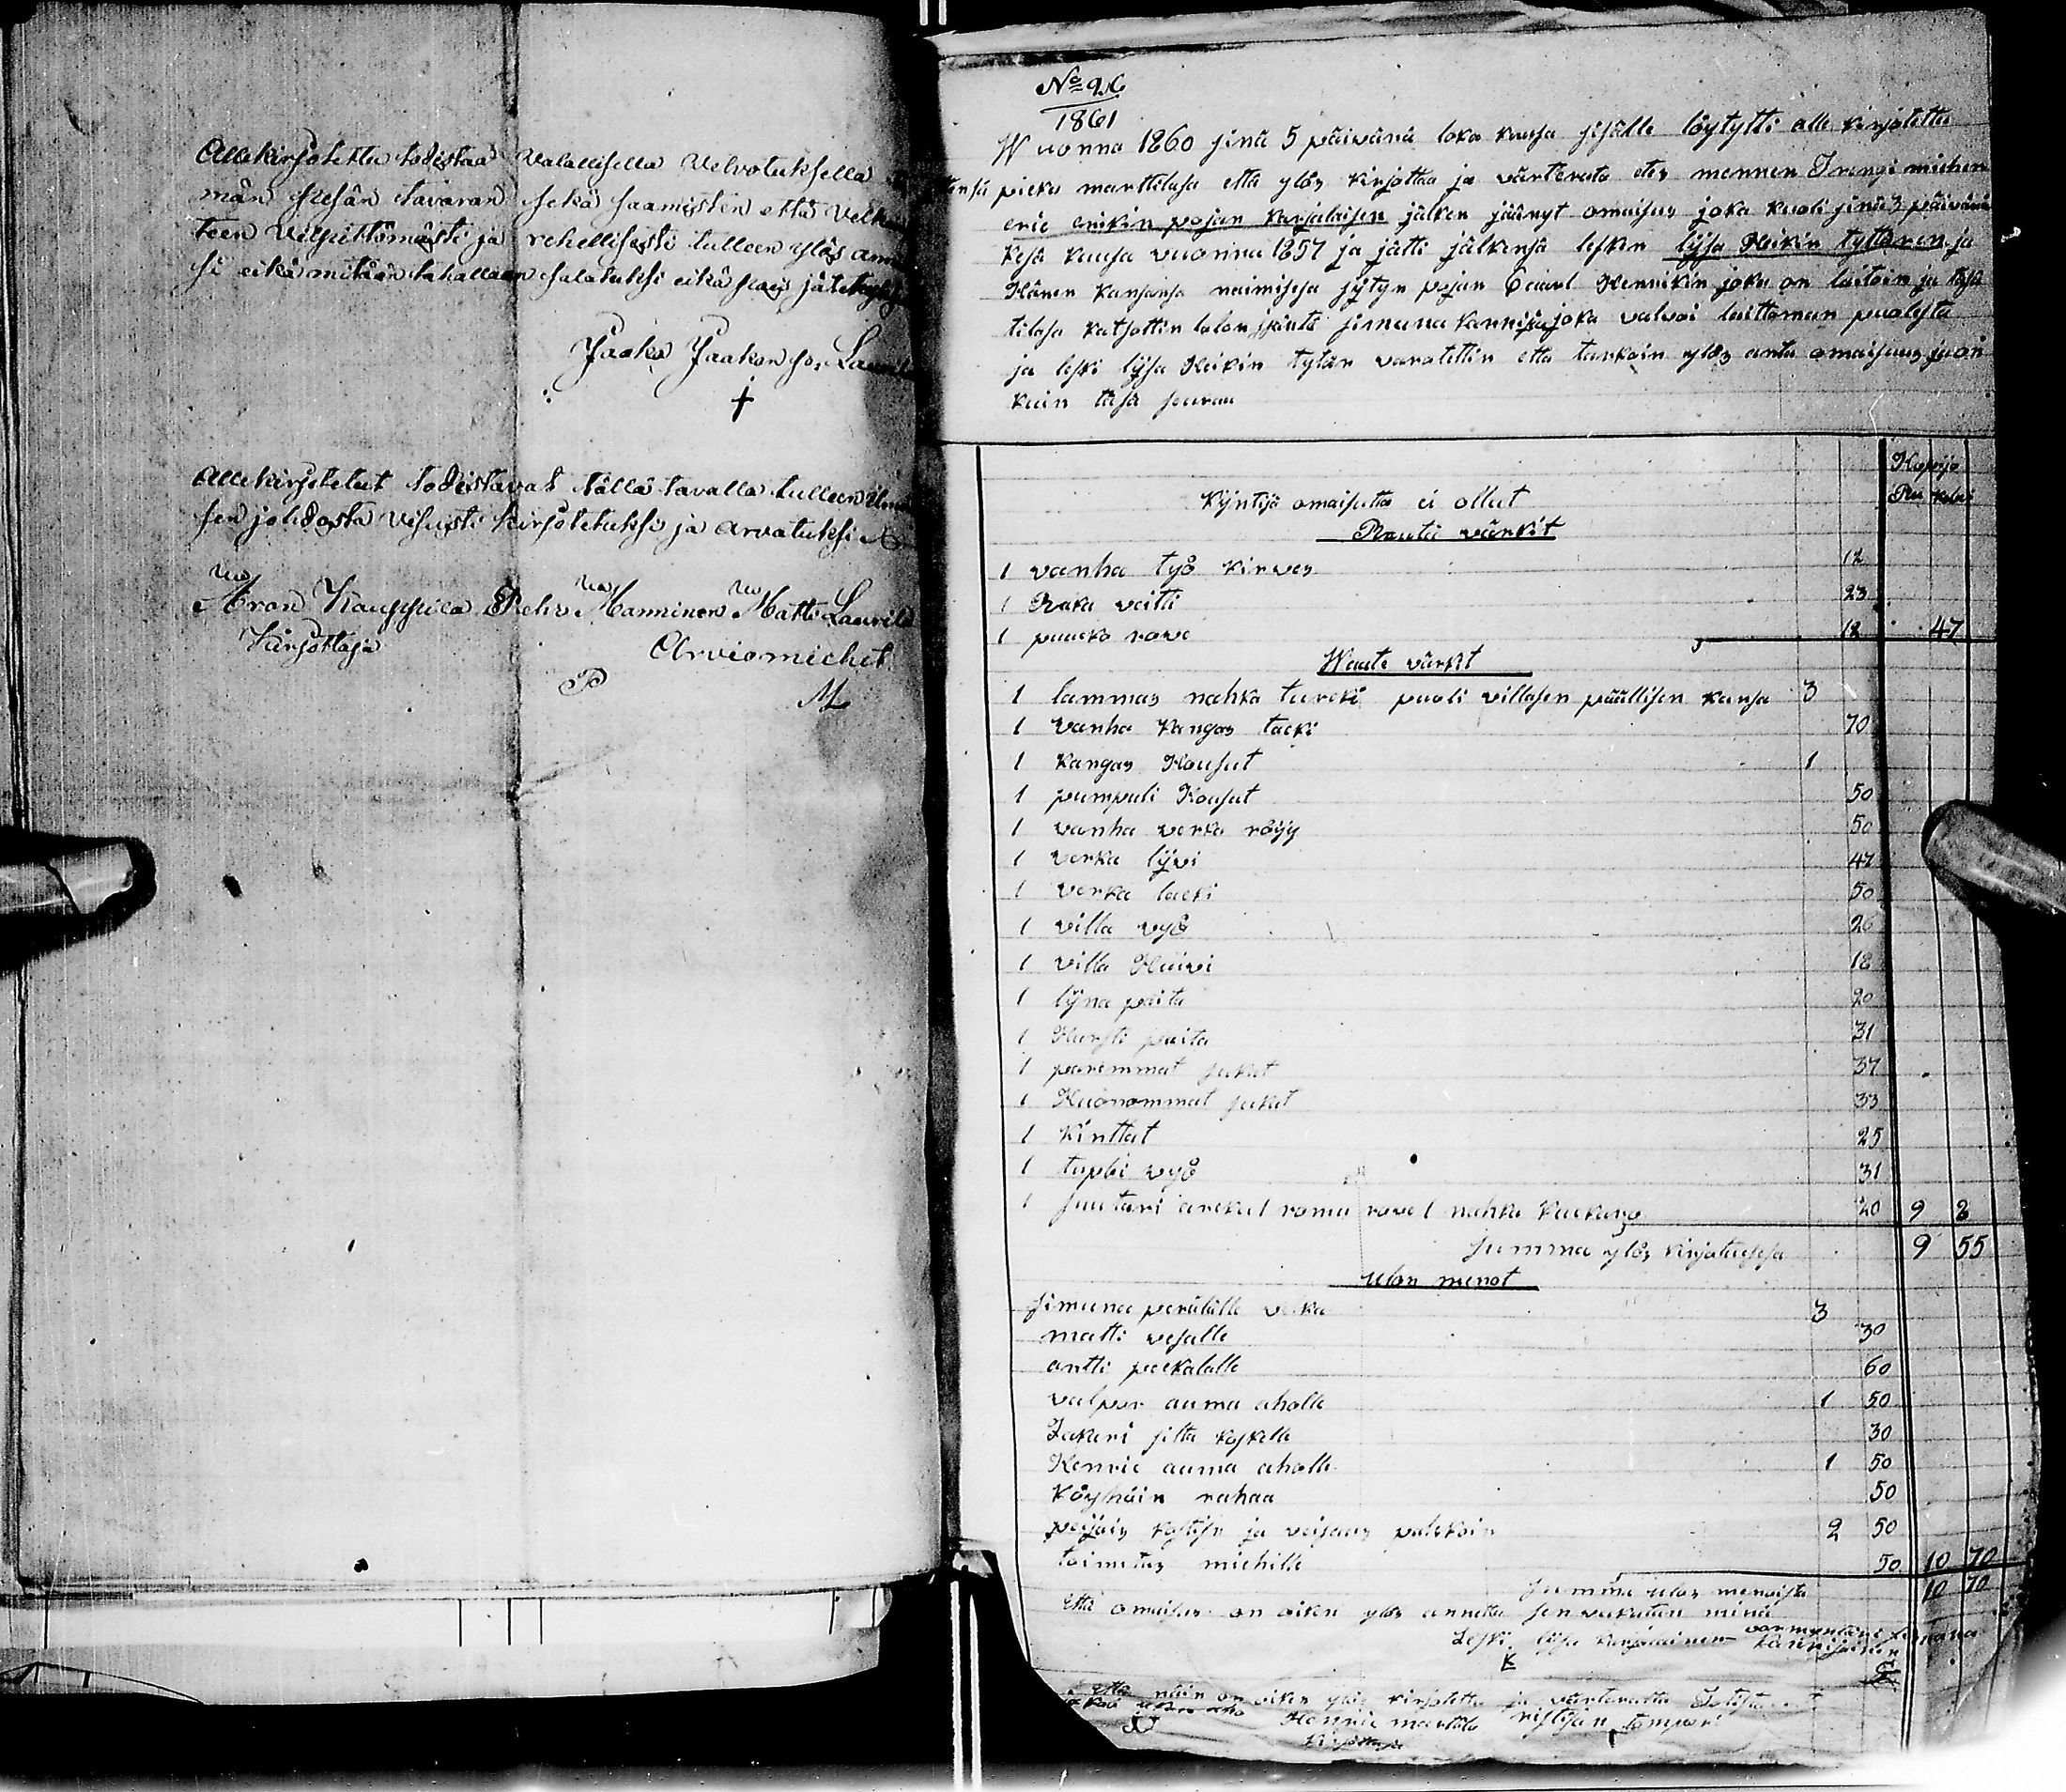 Allekirjotettu todistaa Valallisella Velvotuksella
män pesän tavaran sekä saamisten että Velka
teen Vilpittömästi ja rehellisesti tulleen ylös annet
si eikä mitään tahallaan salatuksi eikä
Jaako Jaakon po. Lauri
Allekirjotetut todistavat tällä tavalla tulleen
sen johdosta Visusti kirjotetuksi ja arvatuksi
Aron Kauppila Pehr Manninen Matti Laurila
Kirjottaja
Arviomiehet
P
M
No 96
1861
Wuonna 1860 sinä 5 päivänä loka kuusa sisälle löytytti alle kirjotettu
pieka marttilasa että ylös kirjottaa ja värterata etes mennen Trengi miehen
eric erikin pojan karjalaisen jälken jäänyt omaisus joka kuoli sinä 3 päivänä
kesä kuusa vuonna 1857 ja jätti jälkensä lesken lijsa Heikin tyttären ja
Hänen kansansa naimisesa sijtyn pojan Hennikin joka on laitoin ja täsä
tilasa katsottin simuna joka valvoi laittoman puolesta
ja leski lijsa Heikin tytär varotettin että tarkoin ylös anta omaisuus
kuin täsä seuraa
Kopeja
Kijntijä omaisutta ei ollut
Rautä värkit
1 vanha työ kirves 12
1 Raka veitti 23
1 puuko rowe 12 47
Waate värkit
1 lammas nahka turcki puoli villasen päällisen kansa 3
1 Vanha kangas tacki 70
1 kangas Housut 1
1 pumpuli Housut 50
1 vanha verka röijy 50
1 verka lijvi 47
1 verka lacki 50
1 villa vyö 26
1 villa Huivi 18
1 lijna paita 20
1 Hursti paita 31
1 paremmat sukat 37
1 Huonommat sukat 33
1 kinttat 25
1 tuppi vyö 31
1 suutari 1 romu rove 1 nahka kuckaro 20 9 8
summa ylös kirjatusesa 9 55
ulos menot
simuna perälälle velka 3
matti vesalle 30
antti peckalalle 60
valpur auma aholle 1 50
Zakari silta koskelle 30
Henric auma aholle 1 50
köyhäin rahaa 50
peijäis kostisn ja veisaus palckoin 2 50
toimitus miehille 50 10 70
summa ulos menoista 10 70
Että omaisus on oiken ylös annettu sen vakutan minä
Leski lijsa karjalainen
K
Että näin on oiken ylös kirjotettu ja värterattu
Henric marttila ristijän tamperi
kirjottaja